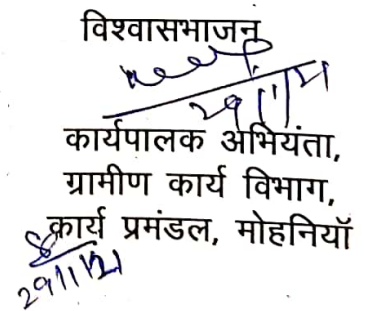 विश्वासभाजन
29/1/21
कार्यपालक अभियंता,
ग्रामीण कार्य विभाग,
कार्य प्रमंडल, मोहनियॉ
29/1/21